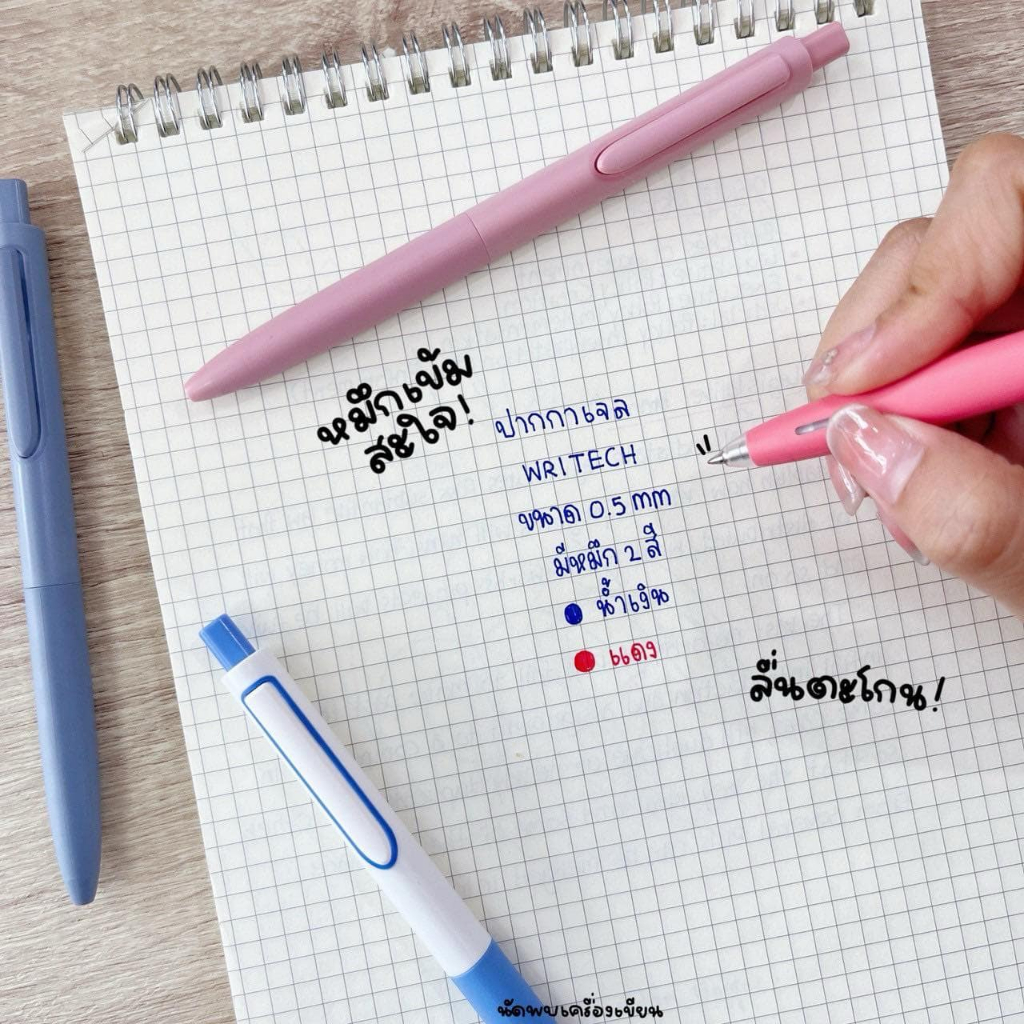 หมึกเข้ม
สะใจ!
ปากกาเจล
WRITECH
ขนาด 0.5 mm
มีหมึก 2 สี
น้ำเงิน
แดง
ลื่นตะโกน!
นัดพบเครื่องเขียน